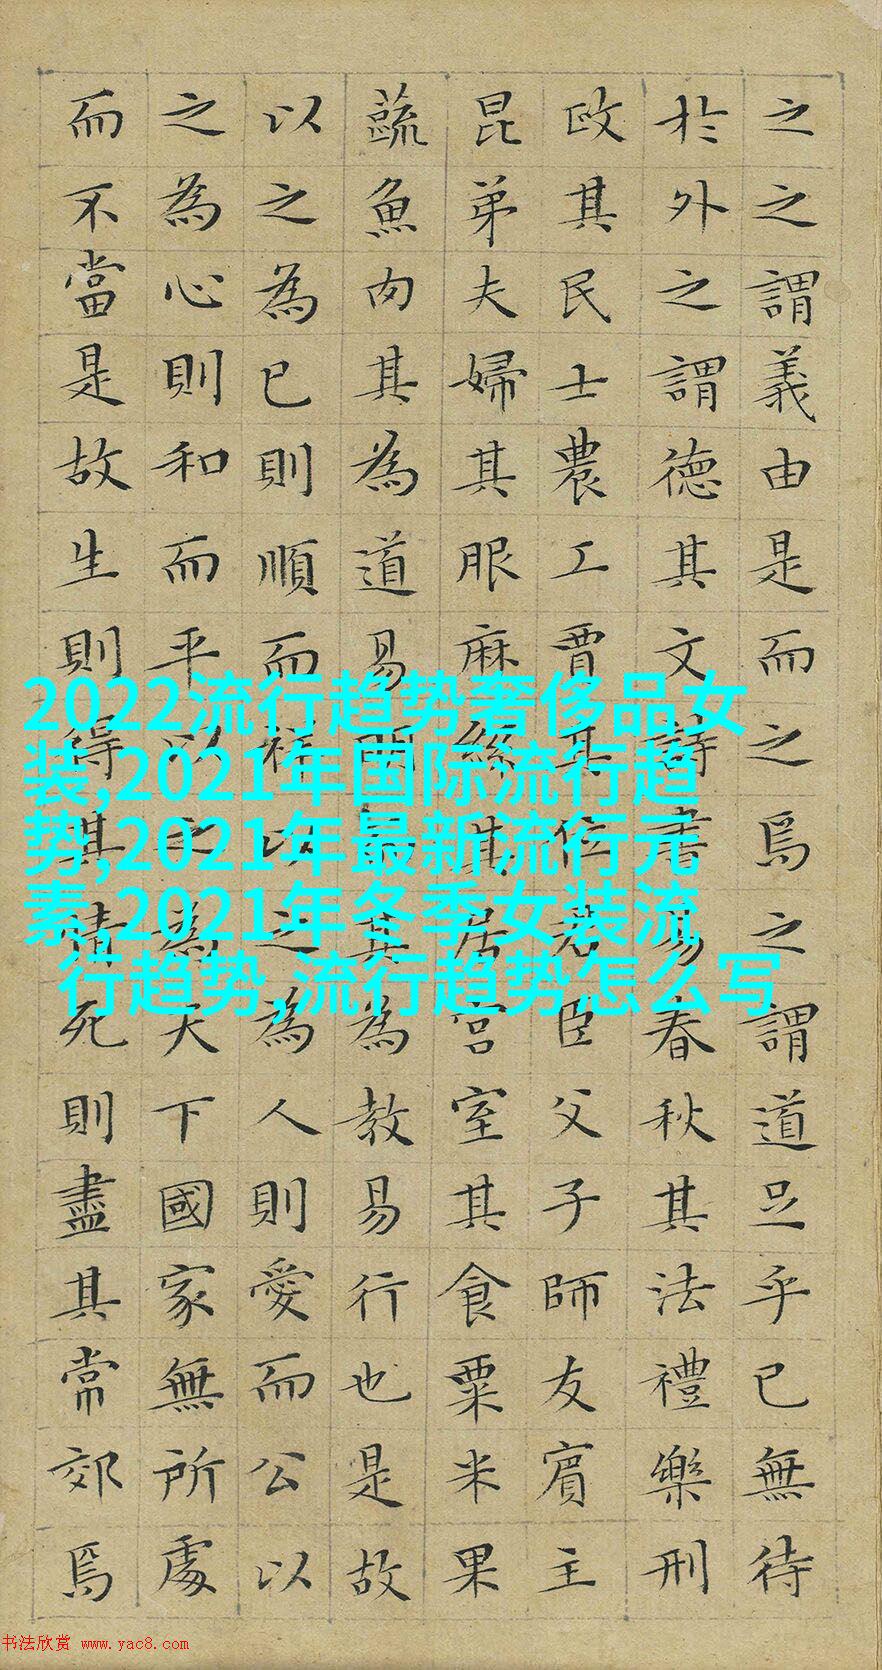 之之謂義由是而之焉之謂道足乎已無待
於外之謂德其文詩書易春秋其法禮樂刑
政其民士農工賈其位君臣父子師友賓主
昆弟夫婦其服麻絲其居宮室其食粟米果
蔬魚肉其為道易明而其為教易行也是故
以之為已則順而祥以之為人則愛而公以
之為心則和而平以之為天下國家無所處
而不當是故生則得其情死則盡其常郊焉
2022流行趋势奢侈品女
装,2021年国际流行趋
势,2021年最新流行元
素,2021年冬季女装流
行趋势,流行趋势怎么写
书法欣赏 www.yac8.com